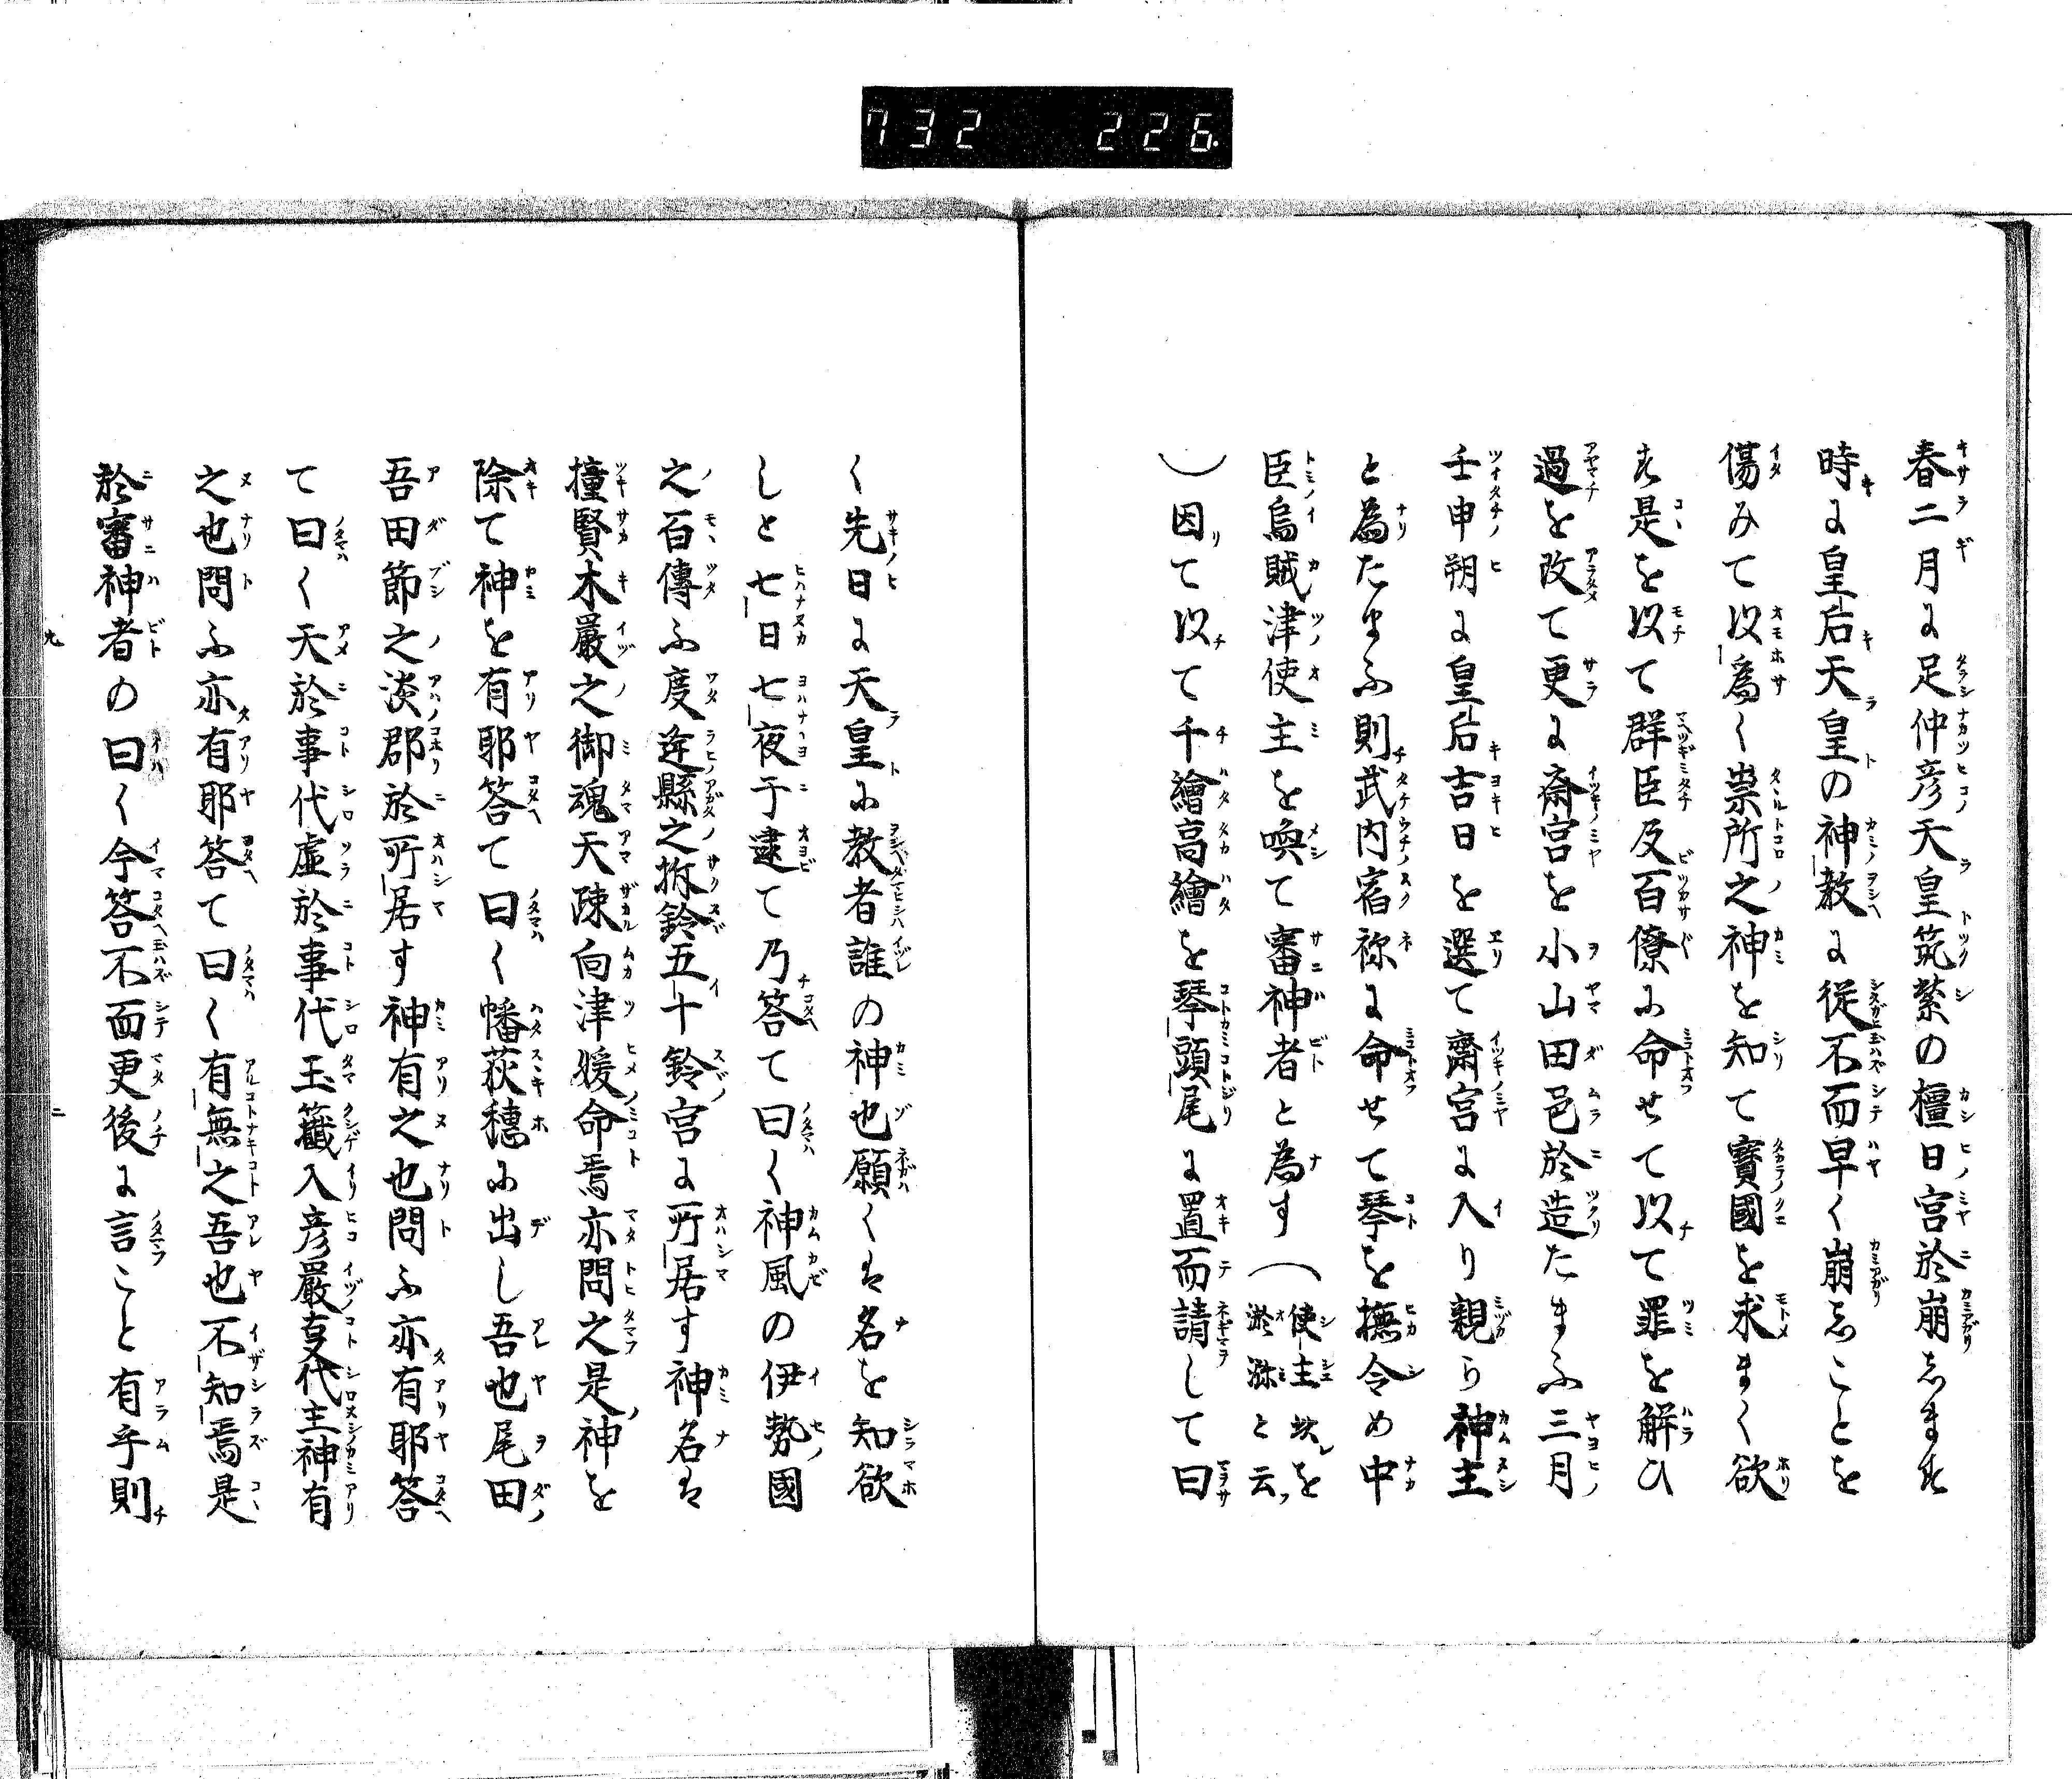 732 226
春二月に足仲彦天皇筑紫の橿日宮於崩します
時に皇后天皇の神教に従不而早く崩しことを
傷みて以為く祟所之神を知て寶國を求まく欲
す是を以て群臣及百僚に命せて以て罪を解ひ
過を改て更に斎宮を小山田邑於造たまふ三月
壬申朔に皇后吉日を選て齋宮に入り親ら神主
と為たまふ則武内宿祢に命せて琴を撫令め中
臣烏賊津使主を喚て審神者と為す(使主此を淤弥と云
)因て以て千繒高繒を琴頭尾に置而請して曰
く先日に天皇に教者誰の神也願くは名を知欲
しと七日七夜于逮て乃答て曰く神風の伊勢國
之百傳ふ度逆縣之拆鈴五十鈴宮に所居す神名は
撞賢木嚴之御魂天疎向津媛命焉亦問之是神を
除て神を有耶答て曰く幡荻穂に出し吾也尾田
吾田節之淡郡於所居す神有之也問ふ亦有耶答
て曰く天於事代虚於事代玉籤入彦嚴事代主神有
之也問ふ亦有耶答て曰く有無之吾也不知焉是
於審神者の曰く今答不而更後に言こと有乎則
九
二